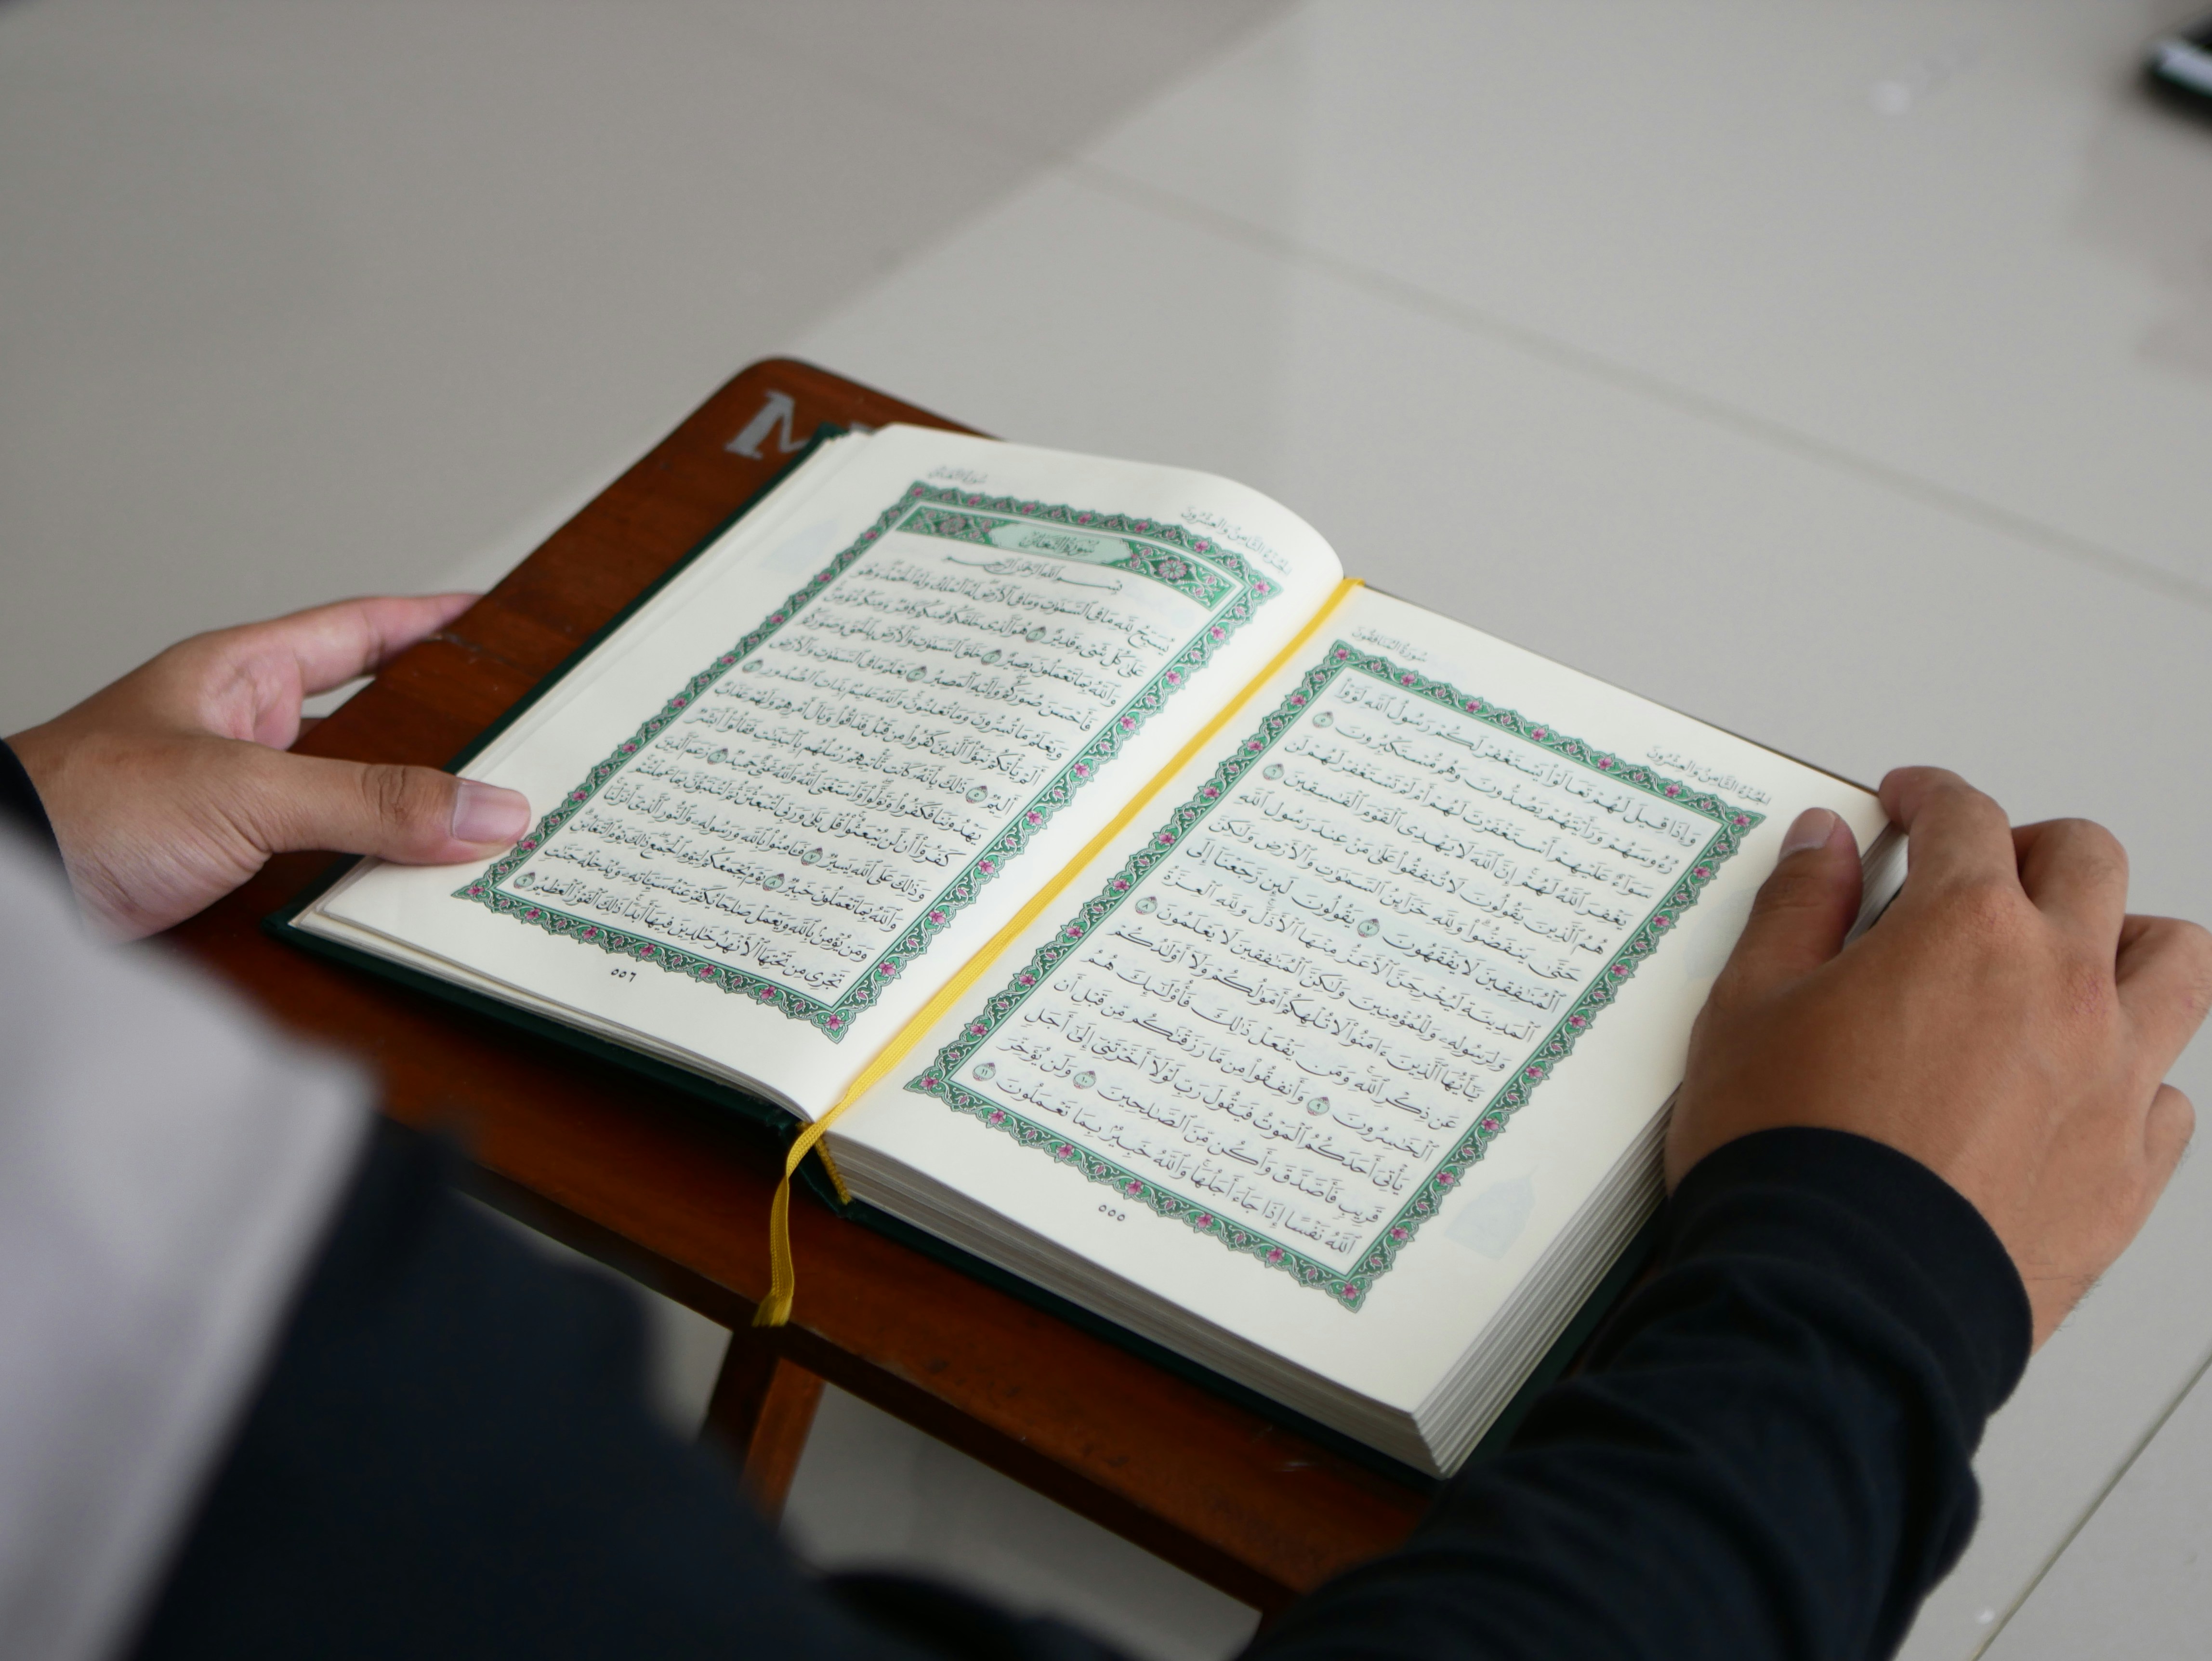 سُورَةُ المُنَافِقُونَ
الجُزْءُ الثَّامِنُ وَالعِشْرُونَ
وَإِذَا قِيلَ لَهُمْ تَعَالَوْا۟ يَسْتَغْفِرْ لَكُمْ رَسُولُ ٱللَّهِ لَوَّوْا۟
رُءُوسَهُمْ وَرَأَيْتَهُمْ يَصُدُّونَ وَهُم مُّسْتَكْبِرُونَ ٥
سَوَآءٌ عَلَيْهِمْ أَسْتَغْفَرْتَ لَهُمْ أَمْ لَمْ تَسْتَغْفِرْ لَهُمْ لَن
يَغْفِرَ ٱللَّهُ لَهُمْ إِنَّ ٱللَّهَ لَا يَهْدِى ٱلْقَوْمَ ٱلْفَـٰسِقِينَ ٦
هُمُ ٱلَّذِينَ يَقُولُونَ لَا تُنفِقُوا۟ عَلَىٰ مَنْ عِندَ رَسُولِ ٱللَّهِ
حَتَّىٰ يَنفَضُّوا۟ وَلِلَّهِ خَزَآئِنُ ٱلسَّمَـٰوَٰتِ وَٱلْأَرْضِ وَلَـٰكِنَّ
ٱلْمُنَـٰفِقِينَ لَا يَفْقَهُونَ ٧ يَقُولُونَ لَئِن رَّجَعْنَآ إِلَى
ٱلْمَدِينَةِ لَيُخْرِجَنَّ ٱلْأَعَزُّ مِنْهَا ٱلْأَذَلَّ وَلِلَّهِ ٱلْعِزَّةُ
وَلِرَسُولِهِۦ وَلِلْمُؤْمِنِينَ وَلَـٰكِنَّ ٱلْمُنَـٰفِقِينَ لَا يَعْلَمُونَ ٨
يَـٰٓأَيُّهَا ٱلَّذِينَ ءَامَنُوا۟ لَا تُلْهِكُمْ أَمْوَٰلُكُمْ وَلَآ أَوْلَـٰدُكُمْ
عَن ذِكْرِ ٱللَّهِ وَمَن يَفْعَلْ ذَٰلِكَ فَأُو۟لَـٰٓئِكَ هُمُ
ٱلْخَـٰسِرُونَ ٩ وَأَنفِقُوا۟ مِن مَّا رَزَقْنَـٰكُم مِّن قَبْلِ أَن
يَأْتِىَ أَحَدَكُمُ ٱلْمَوْتُ فَيَقُولَ رَبِّ لَوْلَآ أَخَّرْتَنِىٓ إِلَىٰٓ أَجَلٍ
قَرِيبٍ فَأَصَّدَّقَ وَأَكُن مِّنَ ٱلصَّـٰلِحِينَ ١٠ وَلَن يُؤَخِّرَ
ٱللَّهُ نَفْسًا إِذَا جَآءَ أَجَلُهَا وَٱللَّهُ خَبِيرٌۢ بِمَا تَعْمَلُونَ ١١
٥٥٥
الجُزْءُ الثَّامِنُ وَالعِشْرُونَ
سُورَةُ التَّغَابُنِ
سُورَةُ التَّغَابُنِ
بِسْمِ ٱللَّهِ ٱلرَّحْمَـٰنِ ٱلرَّحِيمِ
يُسَبِّحُ لِلَّهِ مَا فِى ٱلسَّمَـٰوَٰتِ وَمَا فِى ٱلْأَرْضِ لَهُ ٱلْمُلْكُ وَلَهُ ٱلْحَمْدُ وَهُوَ
عَلَىٰ كُلِّ شَىْءٍ قَدِيرٌ ١ هُوَ ٱلَّذِى خَلَقَكُمْ فَمِنكُمْ كَافِرٌ وَمِنكُم مُّؤْمِنٌ
وَٱللَّهُ بِمَا تَعْمَلُونَ بَصِيرٌ ٢ خَلَقَ ٱلسَّمَـٰوَٰتِ وَٱلْأَرْضَ بِٱلْحَقِّ وَصَوَّرَكُمْ
فَأَحْسَنَ صُوَرَكُمْ وَإِلَيْهِ ٱلْمَصِيرُ ٣ يَعْلَمُ مَا فِى ٱلسَّمَـٰوَٰتِ وَٱلْأَرْضِ
وَيَعْلَمُ مَا تُسِرُّونَ وَمَا تُعْلِنُونَ وَٱللَّهُ عَلِيمٌۢ بِذَاتِ ٱلصُّدُورِ ٤
أَلَمْ يَأْتِكُمْ نَبَؤُا۟ ٱلَّذِينَ كَفَرُوا۟ مِن قَبْلُ فَذَاقُوا۟ وَبَالَ أَمْرِهِمْ وَلَهُمْ عَذَابٌ
أَلِيمٌ ٥ ذَٰلِكَ بِأَنَّهُۥ كَانَت تَّأْتِيهِمْ رُسُلُهُم بِٱلْبَيِّنَـٰتِ فَقَالُوٓا۟ أَبَشَرٌ
يَهْدُونَنَا فَكَفَرُوا۟ وَتَوَلَّوا۟ وَّٱسْتَغْنَى ٱللَّهُ وَٱللَّهُ غَنِىٌّ حَمِيدٌ ٦ زَعَمَ ٱلَّذِينَ
كَفَرُوٓا۟ أَن لَّن يُبْعَثُوا۟ قُلْ بَلَىٰ وَرَبِّى لَتُبْعَثُنَّ ثُمَّ لَتُنَبَّؤُنَّ بِمَا عَمِلْتُمْ
وَذَٰلِكَ عَلَى ٱللَّهِ يَسِيرٌ ٧ فَـَٔامِنُوا۟ بِٱللَّهِ وَرَسُولِهِۦ وَٱلنُّورِ ٱلَّذِىٓ أَنزَلْنَا
وَٱللَّهُ بِمَا تَعْمَلُونَ خَبِيرٌ ٨ يَوْمَ يَجْمَعُكُمْ لِيَوْمِ ٱلْجَمْعِ ذَٰلِكَ يَوْمُ ٱلتَّغَابُنِ
وَمَن يُؤْمِنۢ بِٱللَّهِ وَيَعْمَلْ صَـٰلِحًا يُكَفِّرْ عَنْهُ سَيِّـَٔاتِهِۦ وَيُدْخِلْهُ جَنَّـٰتٍ
تَجْرِى مِن تَحْتِهَا ٱلْأَنْهَـٰرُ خَـٰلِدِينَ فِيهَآ أَبَدًا ذَٰلِكَ ٱلْفَوْزُ ٱلْعَظِيمُ ٩
٥٥٦